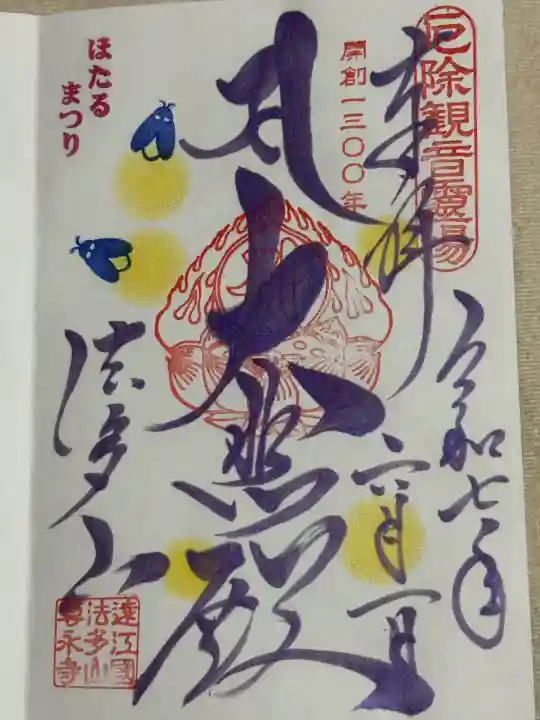 厄除観音霊場
奉拝
開創一三〇〇年
令和七年
六月一日
大悲殿
法多山
ほたる
まつり
遠江國
法多山
尊永寺